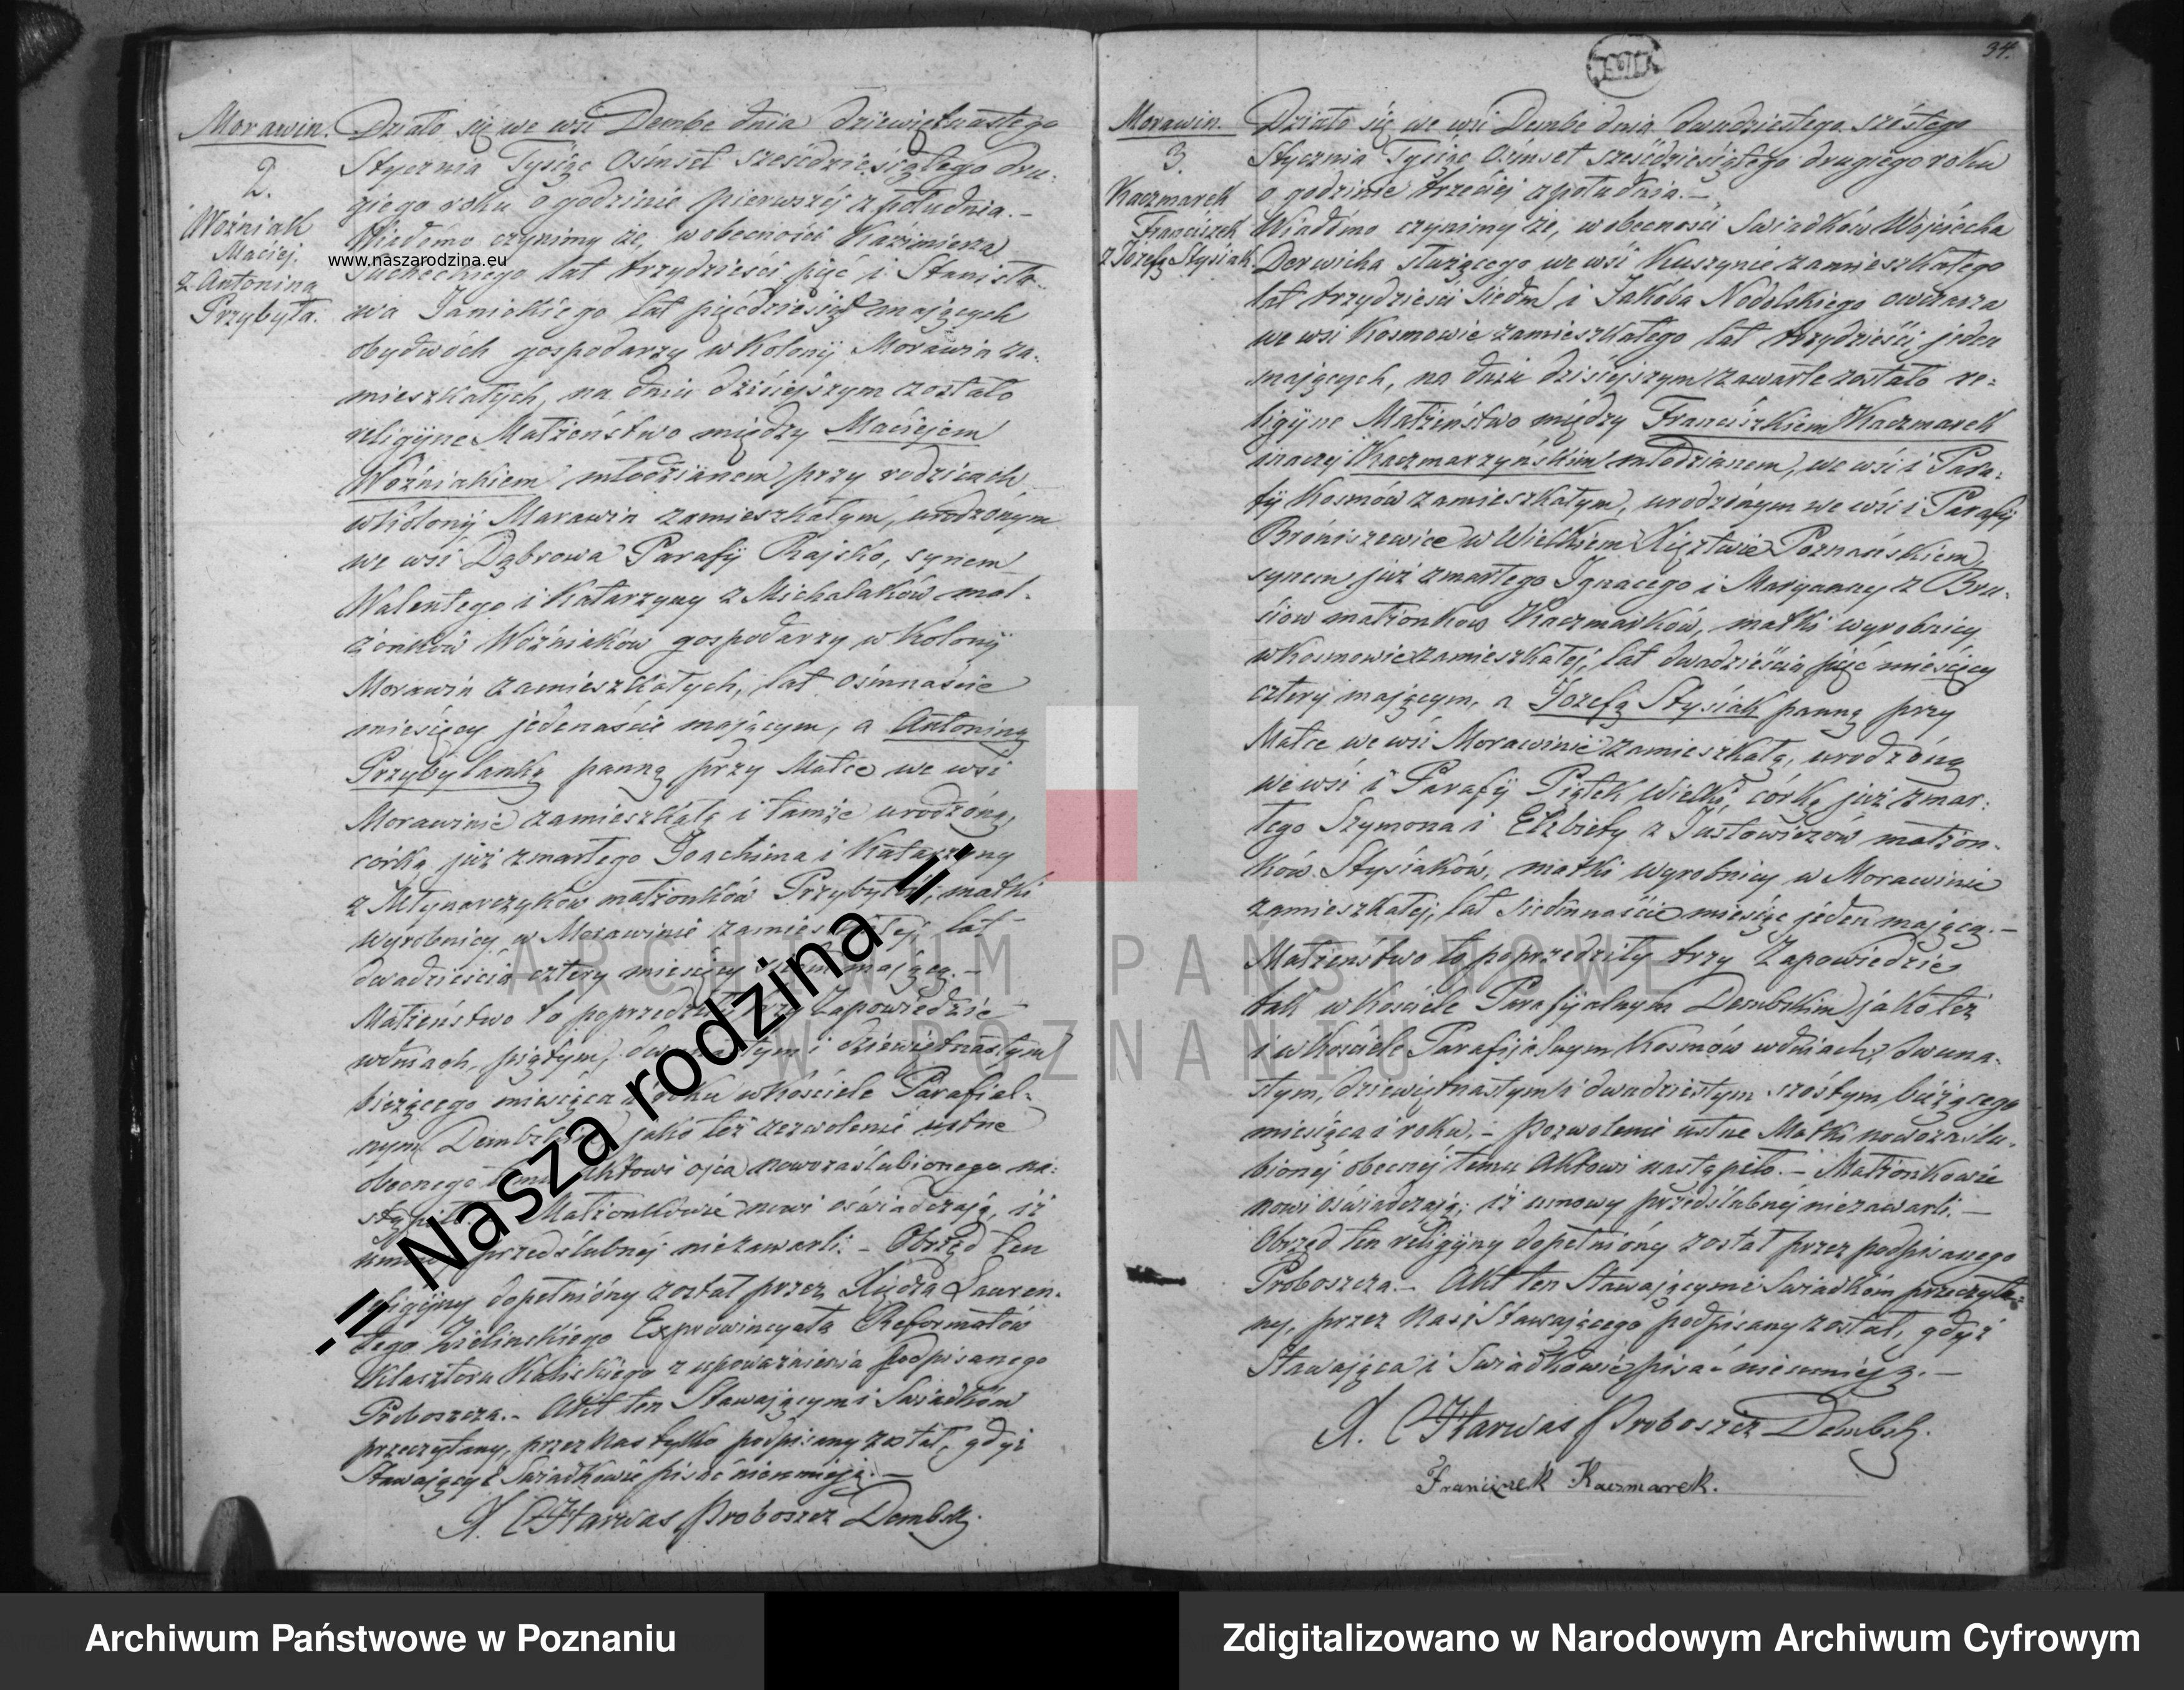 Morawin.
2.
Woźniak
Maciej.
z Antoniną
Przybyła.
www.naszarodzina.eu
Działo się we wsi Dembe dnia dziewiętnastego
Stycznia Tysiąc Ośmset sześćdziesiątego dru-
giego roku o godzinie pierwszéj z południa.-
Wiadomo czynimy że, w obecności Kazimierza
Sucheckiego lat trzydzieści pięć i Stanisła-
wa Janickiego lat pięćdziesiąt mających
obydwóch gospodarzy w Kolonij Morawin za-
mieszkałych, na dniu dzisiejszym zostało
religijne Małżeństwo między Maciejem
Woźniakiem młodzianem przy rodzicach
w Kolonij Morawin zamieszkałym, urodzonym
we wsi Dąbrowa Parafij Rajsko, synem
Walentego i Katarzyny z Michalaków mał-
żonków Woźniaków gospodarzy w Kolonij
Morawin zamieszkałych, lat ośmnaście
miesięcy jedenaście mającym, a Antoniną
Przybylanką panną przy Matce we wsi
Morawinie zamieszkałą i tamże urodzoną,
córką już zmarłego Joachima i Katarzyny
z Młynarczyków małżonków Przybyłów, matki
wyrobnicy w Morawinie zamieszkałej, lat
dwadzieścia cztery miesięcy mającą.-
Małżeństwo to poprzedziły trzy Zapowiedzie
w dniach, piątym, dwunastym i dziewiętnastym
bieżącego miesiąca i roku w Kościele Parafial-
nym Dembskim jako też zezwolenie ustne
obecnego temu Aktowi ojca nowozaślubionego na-
stąpiło. Małżonkowie nowi oświadczają, iż
umowy przedślubnéj niezawarli.- Obrząd ten
religijny dopełniony został przez Xiędza Lauren-
tego Zielinskiego Exprowincyała Reformatów
Klasztoru Kaliskiego z upoważnienia podpisanego
Proboszcza.- Akt ten Stawającym i Świadkom
przeczytany, przez Nas tylko podpisany został, gdyż
Stawający i Świadkowie pisać nieumieją.-
X. Harwas Proboszcz Dembsk.
34.
Morawin.
3.
Kaczmarek
Franciszek
z Józefą Stysiak
Działo się we wsi Dembe dnia dwudziestego szóstego
Stycznia Tysiąc Ośmset sześćdziesiątego drugiego roku
o godzinie trzeciéj z południa.-
Wiadomo czynimy że, w obecności Świadków Wojciecha
Derwicha służącego we wsi Kuszynie zamieszkałego
lat trzydzieści siedm i Jakóba Nodolskiego owczarza
we wsi Kosmowie zamieszkałego lat trzydzieści jeden
mających, na dniu dzisiejszym zawarte zostało re-
ligijne Małżeństwo między Franciszkiem Kaczmarek
inaczej Kaczmarzyńskim młodzianem, we wsi i Para-
fij Kosmów zamieszkałym, urodzonym we wsi i Parafij
Broniszewice w Wielkiem Xięztwie Poznańskiem,
synem już zmarłego Ignacego i Maryanny z Bru-
siów małżonków Kaczmarków, matki wyrobnicy
w Kosmowie zamieszkałéj, lat dwadzieścia pięć miesięcy
cztery mającym, a Józefą Stysiak panną przy
Matce we wsi Morawinie zamieszkałą, urodzoną
we wsi i Parafij Piątek Wielki, córką już zmar-
łego Szymona i Elżbiety z Justowiczów małżon-
ków Stysiaków, matki wyrobnicy w Morawinie
zamieszkałej, lat siedmnaście miesiąc jeden mającą.-
Małżeństwo to poprzedziły trzy Zapowiedzie
tak w Kościele Parafijalnym Dembskim jako też
i w Kościele Parafijalnym Kosmów w dniach, dwuna-
stym, dziewiętnastym i dwudziestym szóstym bieżącego
miesiąca i roku,- pozwolenie ustne Matki nowozaślu-
bionéj obecnéj temu Aktowi nastąpiło.- Małżonkowie
nowi oświadczają; iż umowy przedślubnéj niezawarli.-
Obrzęd ten religijny dopełniony został przez podpisanego
Proboszcza.- Akt ten Stawającymi Świadkom przeczyta-
ny, przez Nas i Stawającego podpisany został, gdyż
Stawająca i Świadkowie pisać nieumieją.-
X. Harwas Proboszcz Dembsk.
Franciszek Kaczmarek.
ARCHIWUM PAŃSTWOWE
W POZNANIU
-= Nasza rodzina =-
Archiwum Państwowe w Poznaniu
Zdigitalizowano w Narodowym Archiwum Cyfrowym